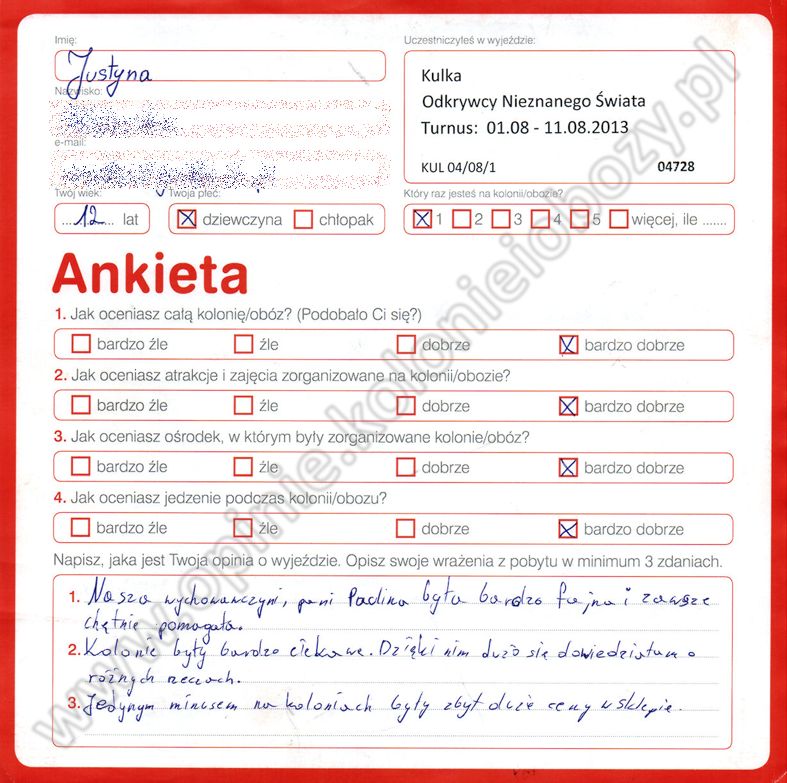 Imię:
Justyna
Nazwisko:
e-mail:
Twój wiek:
12 lat
Twoja płeć:
dziewczyna chłopak
Uczestniczyłeś w wyjeździe:
Kulka
Odkrywcy Nieznanego Świata
Turnus: 01.08 - 11.08.2013
KUL 04/08/1 04728
Który raz jesteś na kolonii/obozie?
1 2 3 4 5 więcej, ile .......
Ankieta
1. Jak oceniasz całą kolonię/obóz? (Podobało Ci się?)
bardzo źle źle dobrze bardzo dobrze
2. Jak oceniasz atrakcje i zajęcia zorganizowane na kolonii/obozie?
bardzo źle źle dobrze bardzo dobrze
3. Jak oceniasz ośrodek, w którym były zorganizowane kolonie/obóz?
bardzo źle źle dobrze bardzo dobrze
4. Jak oceniasz jedzenie podczas kolonii/obozu?
bardzo źle źle dobrze bardzo dobrze
Napisz, jaka jest Twoja opinia o wyjeździe. Opisz swoje wrażenia z pobytu w minimum 3 zdaniach.
1. Nasza wychowawczyni, pani Paulina była bardzo fajna i zawsze
chętnie pomagała.
2. Kolonie były bardzo ciekawe. Dzięki nim dużo się dowiedziałam o
różnych rzeczach.
3. Jedynym minusem na koloniach były zbyt duże ceny w sklepie.
www.opinie.kolonieiobozy.pl